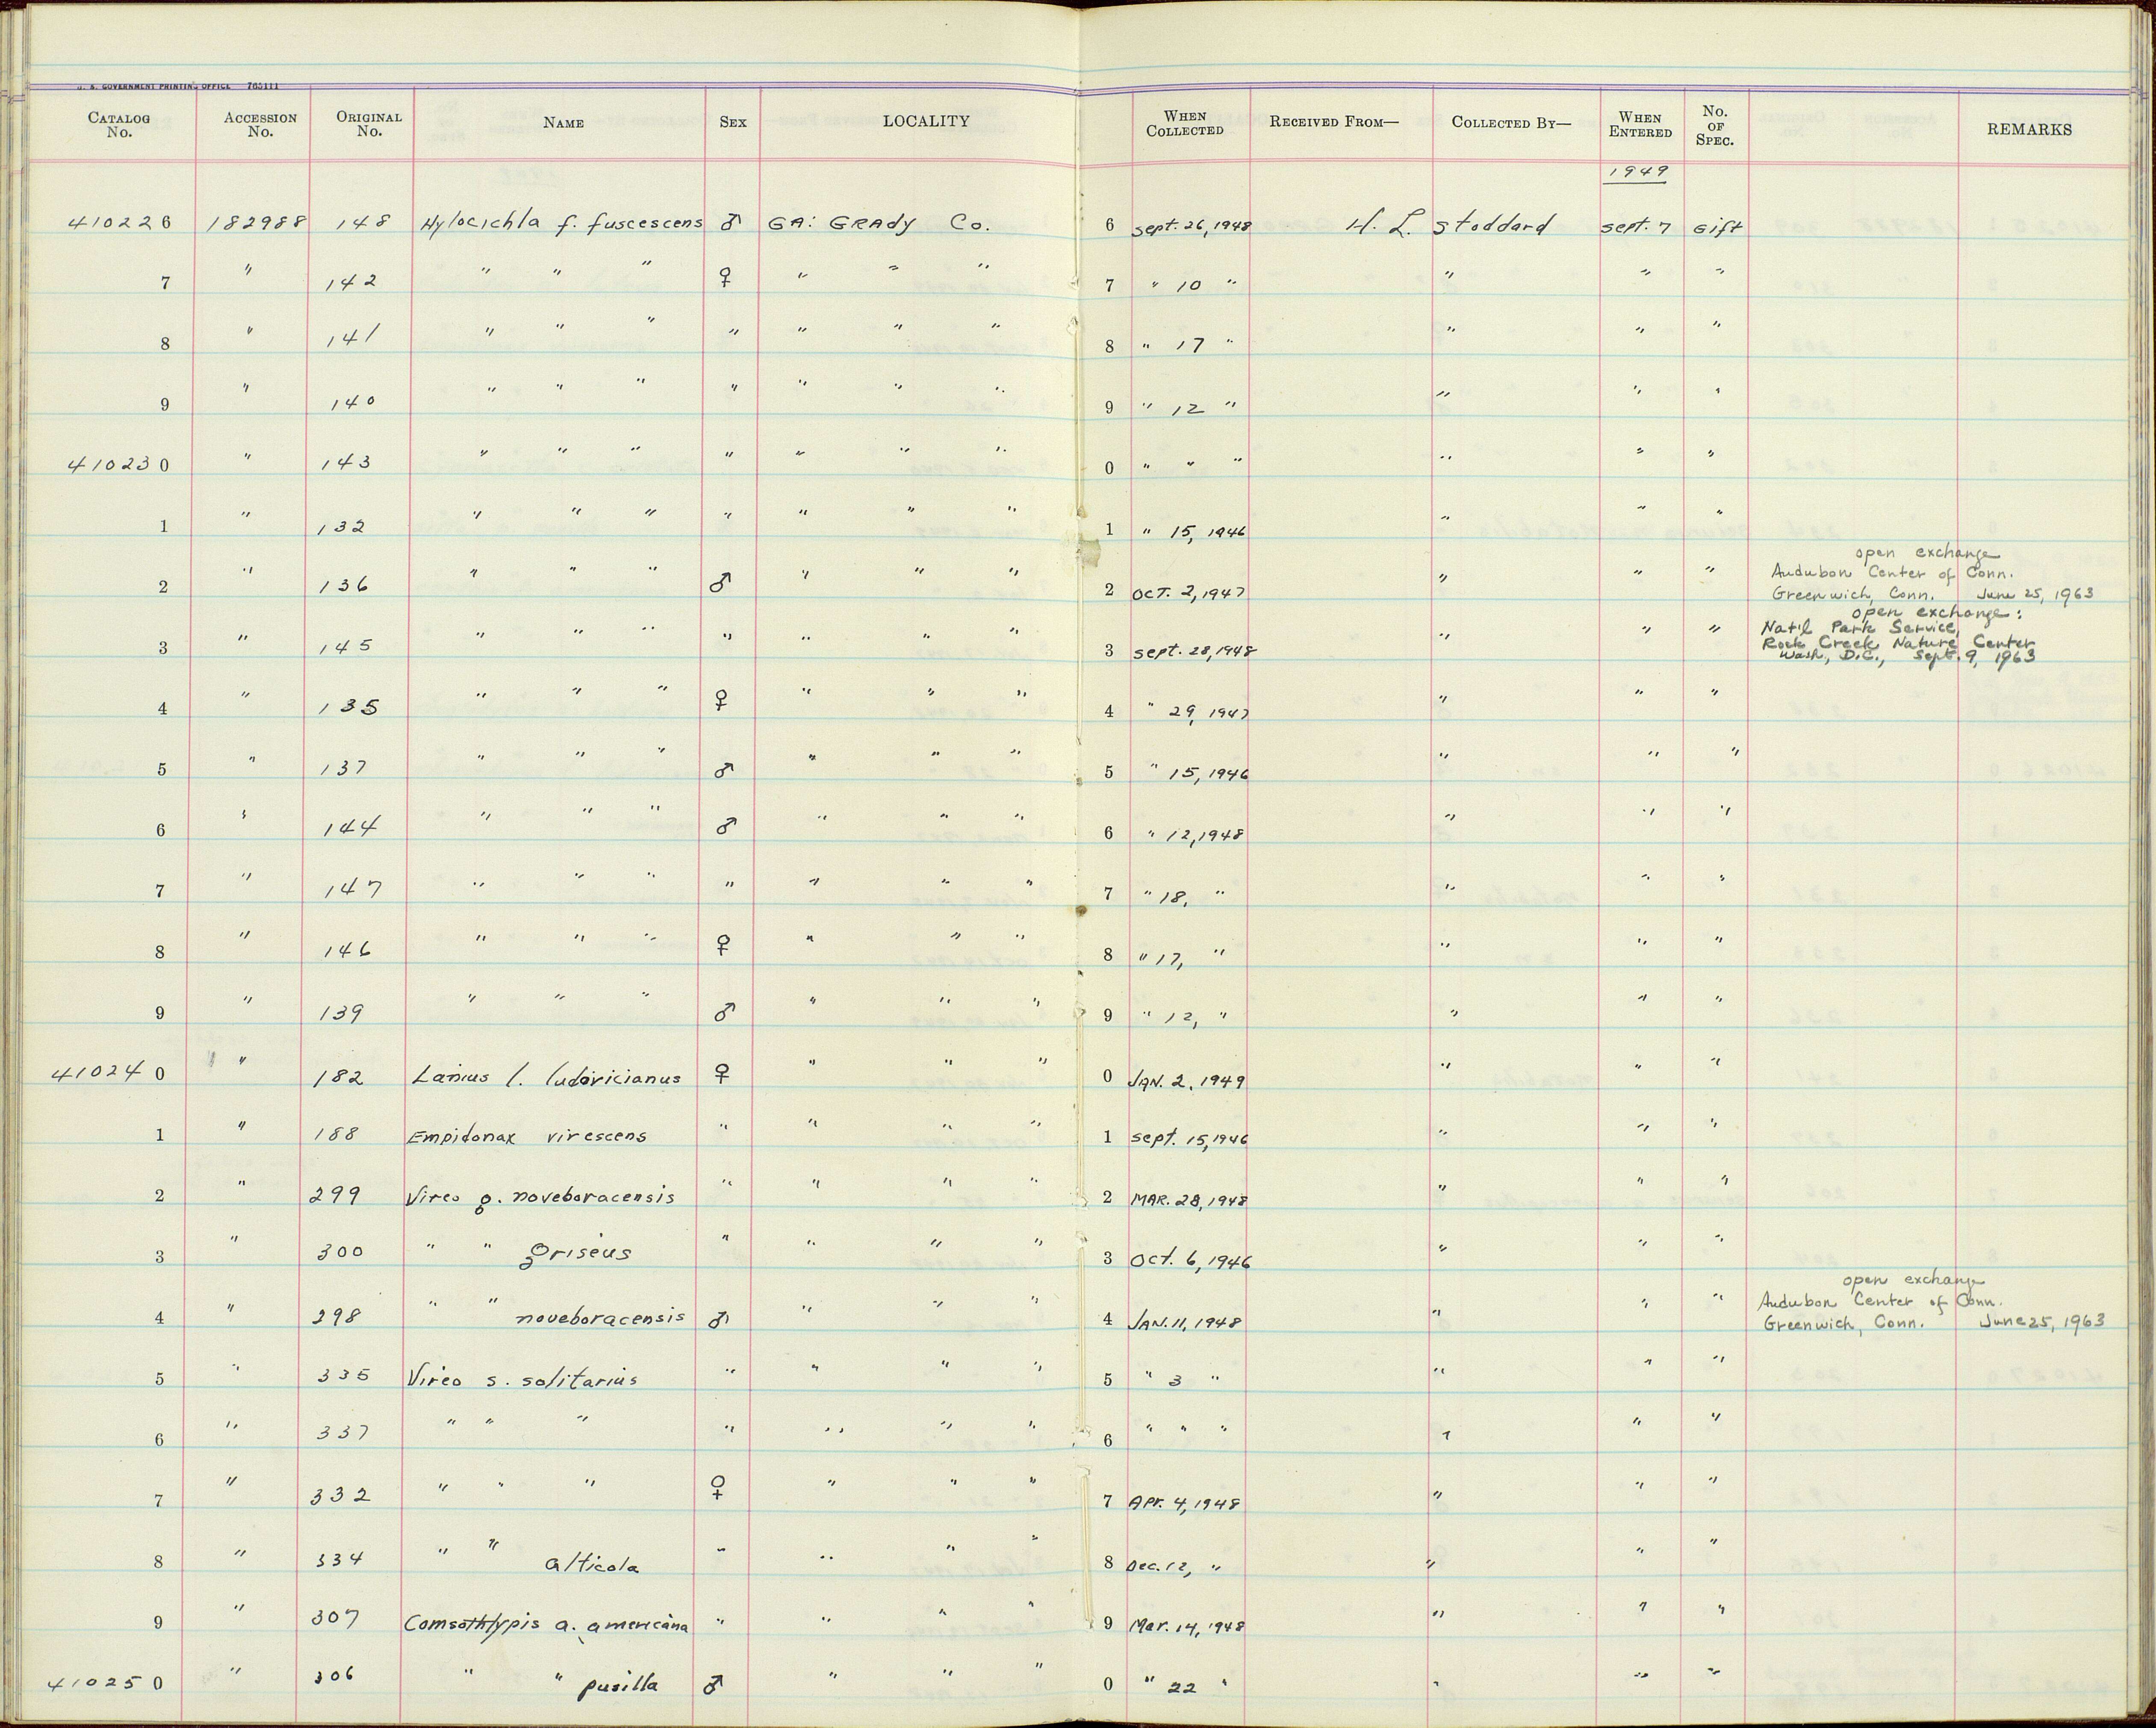 U. S. GOVERNMENT PRINTING OFFICE 765111
CATALOG No. ACCESSION No. ORIGINAL No. NAME SEX LOCALITY WHEN COLLECTED RECEIVED FROM— COLLECTED BY— WHEN ENTERED No. OF SPEC. REMARKS
1949
410226 182988 148 Hylocichla f. fuscescens ♂ GA: GRADY Co. 6 Sept. 26, 1948 H. L. Stoddard Sept. 7 Gift
7 " 142 " " " ♀ " " " 7 " 10 " " " "
8 " 141 " " " " " " " 8 " 17 " " " "
9 " 140 " " " " " " " 9 " 12 " " " "
410230 " 143 " " " " " " " 0 " " " " " "
1 " 132 " " " " " " " 1 " 15, 1946 " " "
open exchange
2 " 136 " " " ♂ " " " 2 OCT. 2, 1947 " " " Audubon Center of Conn.
Greenwich, Conn. June 25, 1963
open exchange:
3 " 145 " " " " " " " 3 Sept. 28, 1948 " " " Nat'l Park Service,
Rock Creek Nature Center
Wash., D.C., Sept. 9, 1963
4 " 135 " " " ♀ " " " 4 " 29, 1947 " " "
5 " 137 " " " ♂ " " " 5 " 15, 1946 " " "
6 " 144 " " " ♂ " " " 6 " 12, 1948 " " "
7 " 147 " " " " " " " 7 " 18, " " " "
8 " 146 " " " ♀ " " " 8 " 17, " " " "
9 " 139 " " " ♂ " " " 9 " 12, " " " "
410240 " 182 Lanius l. ludovicianus ♀ " " " 0 JAN. 2, 1949 " " "
1 " 188 Empidonax virescens " " " " 1 Sept. 15, 1946 " " "
2 " 299 Vireo g. noveboracensis " " " " 2 MAR. 28, 1948 " " "
3 " 300 " " griseus " " " " 3 Oct. 6, 1946 " " "
open exchange
4 " 298 " " noveboracensis ♂ " " " 4 JAN. 11, 1948 " " " Audubon Center of Conn.
Greenwich, Conn. June 25, 1963
5 " 335 Vireo s. solitarius " " " " 5 " 3 " " " "
6 " 337 " " " " " " " 6 " " " " " "
7 " 332 " " " ♀ " " " 7 Apr. 4, 1948 " " "
8 " 334 " " alticola " " " " 8 Dec. 12, " " " "
9 " 307 Comsothlypis a. americana " " " " 9 Mar. 14, 1948 " " "
410250 " 306 " " pusilla ♂ " " " 0 " 22 " " " "